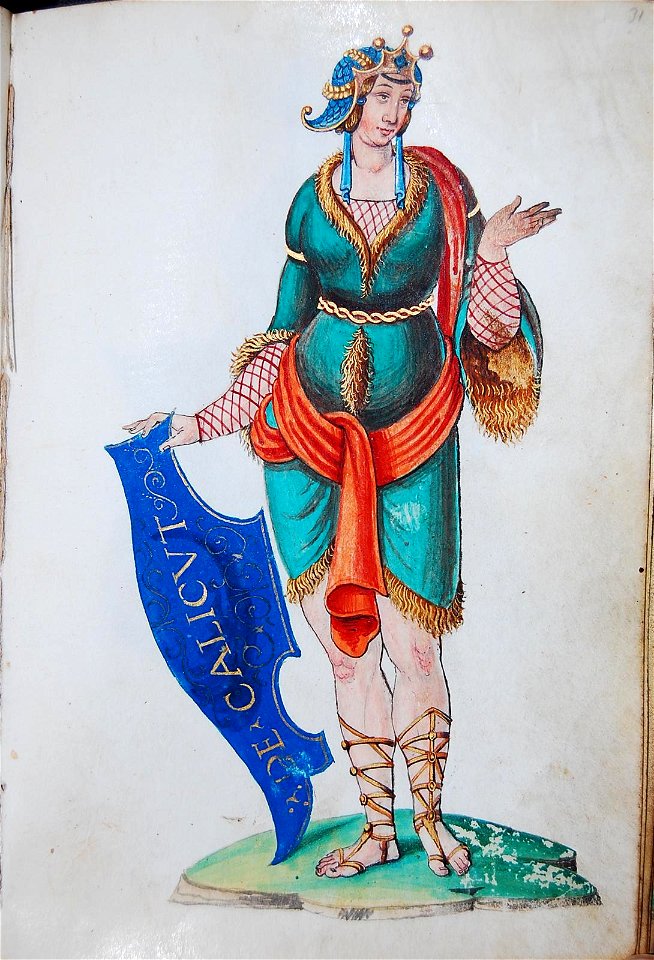 31
·Y· DEY CALICVT